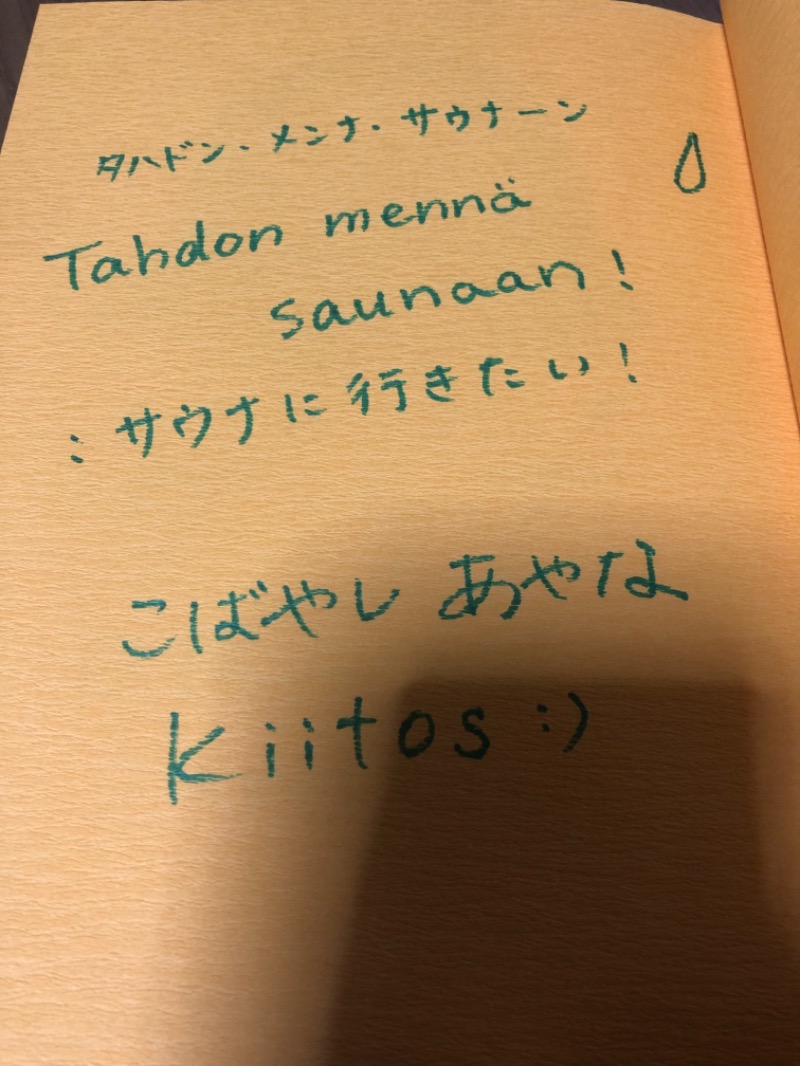 タハドン・メンナ・サウナーン
Tahdon mennä
saunaan!
:サウナに行きたい!
こばやし あやな
Kiitos :)